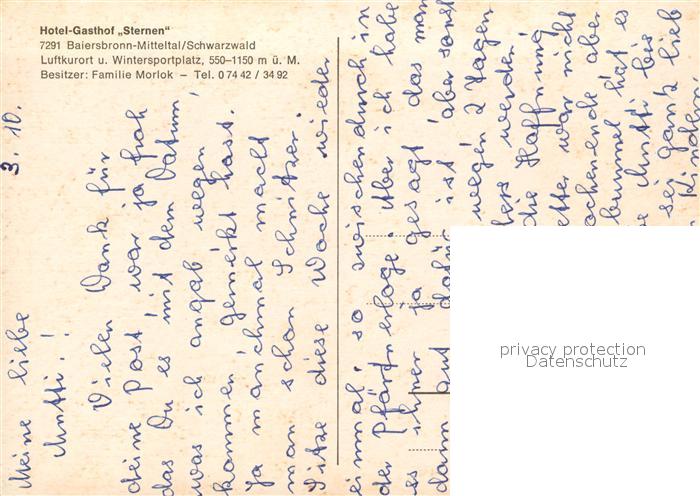 Hotel-Gasthof „Sternen"
7291 Baiersbronn-Mitteltal/Schwarzwald
Luftkurort u. Wintersportplatz, 550–1150 m ü. M.
Besitzer: Familie Morlok – Tel. 0 74 42 / 34 92
3. 10.
Meine liebe
Mutti!
Vielen Dank für
deine Post war ja froh
das Du es mit dem Datum,
was ich angab wegen
kommen gemerkt hast.
ja manchmal macht
man schon Schnitzer.
Sitze diese Woche wieder
einmal so zwischendurch in
der Pfärtnerloge. Aber ich habe
es ihner ja gesagt das man
dann auf dafür ist aber sonst
wegen 2 Tagen
bers werden
die Hoffnung
etter war nicht
ochenende aber
bummel hat es
e Mutti bis
sei ganz lieb
Kindern
privacy protection
Datenschutz